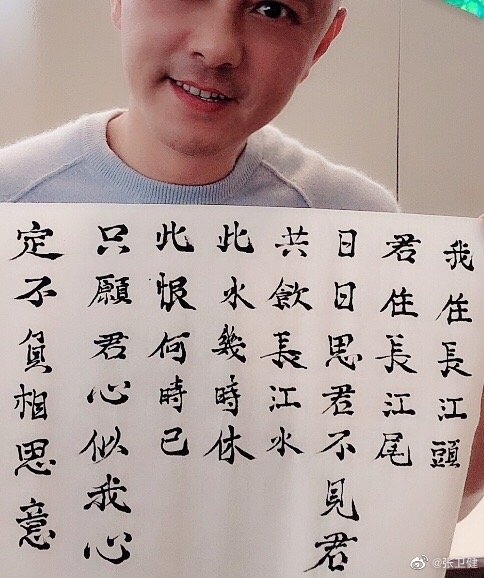 我住長江頭
君住長江尾
日日思君不見君
共飲長江水
此水幾時休
此恨何時已
只願君心似我心
定不負相思意
@张卫健